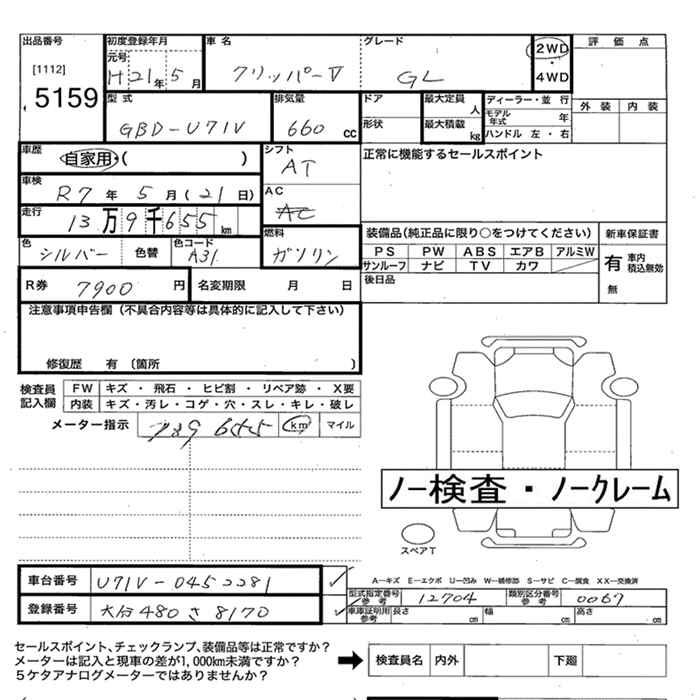 出品番号 初度登録年月 車名 グレード 2WD 4WD 評価点
[1112] 5159 元号 H21年5月 クリッパーV GL 外装 内装
型式 GBD-U71V 排気量 660cc ドア 形状 最大定員 人 最大積載 kg ディーラー・並行 モデル年式 年 ハンドル 左・右
車歴 自家用・( ) シフト AT 正常に機能するセールスポイント
車検 R7年5月(21日) AC AC
走行 13万9千655km 燃料 ガソリン 装備品(純正品に限り○をつけてください) 新車保証書
色 シルバー 色替 色コード A31 PS PW ABS エアB アルミW 有 車内積込無効
サンルーフ ナビ TV カワ
R券 7900円 名変期限 月 日 後日品 無
注意事項申告欄(不具合内容等は具体的に記入して下さい)
修復歴 有 (箇所 )
検査員記入欄 FW キズ・飛石・ヒビ割・リペア跡・X要
内装 キズ・汚レ・コゲ・穴・スレ・キレ・破レ
メーター指示 139655 km マイル
ノー検査・ノークレーム
スペアT
車台番号 U71V-0452281 A―キズ E―エクボ U―凹み W―補修跡 S―サビ C―腐食 XX―交換済
型式指定番号 参考 12704 類別区分番号 参考 0067
登録番号 480さ8170 車庫証明用参考 長さ cm 幅 cm 高さ cm
セールスポイント、チェックランプ、装備品等は正常ですか?
メーターは記入と現車の差が1,000km未満ですか?
5ケタアナログメーターではありませんか? 検査員名 内外 下廻